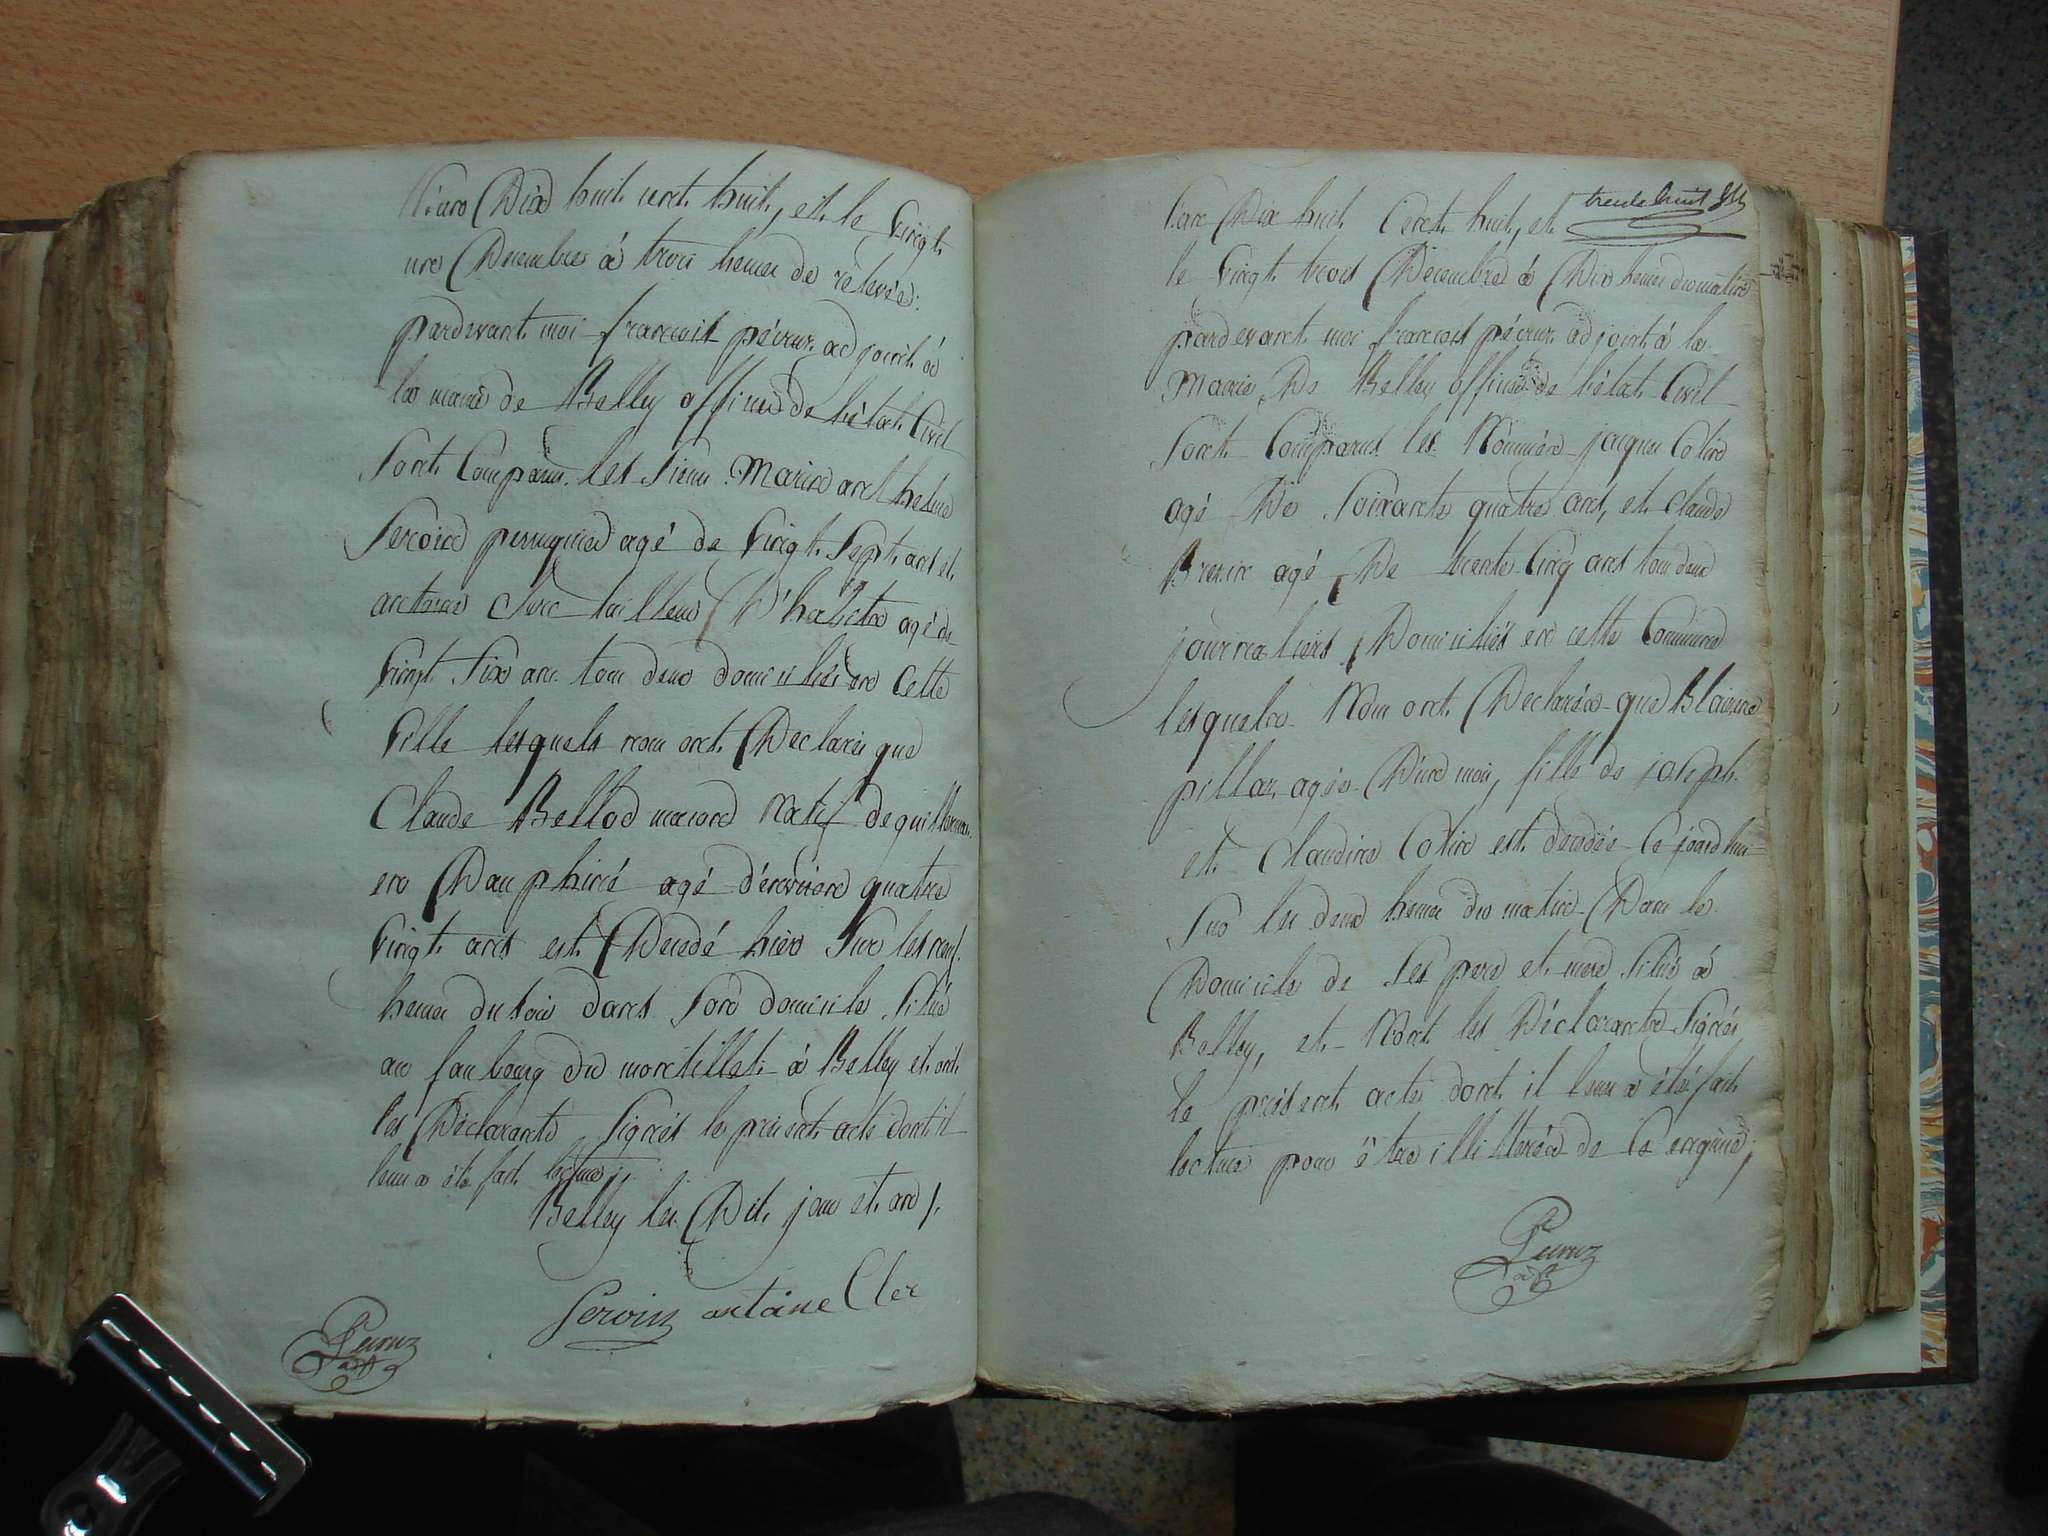 L'an Dix huit cent huit, et le vingt
un Decembre à trois heures de relevée
pardevant moi francois pécruz adjoint à
la mairie de Belley officier de l'état Civil
sont Comparus les sieurs anthelme
Servoin perruquier agé de vingt sept ans et
antoine Clerc tailleur D'habits agé de
vingt six ans tous deux domiciliés en cette
ville lesquels nous ont Declarés que
Claude Bellod natif de
en Dauphiné agé d'environ quatre
vingt ans est Decedé hier sur les neuf
heures du soir dans son domicile situé
au faubourg du montillet à Belley et ont
les Déclarants signés le présent acte dont il
leur a été fait lecture
Belley les Dit jour et an
Servoin antoine Clerc
trente huit
L'an Dix huit Cent huit, et
le vingt trois Decembre à Dix heures du matin
pardevant moi francois pécruz adjoint à la
Mairie De Belley officier de l'état Civil
sont Comparus les Nommés jaques Cotin
agé De soixante quatre ans, et claude
agé De trente Cinq ans tous deux
journaliers Domiciliés en cette Commune
lesquels Nous ont Declarés que
pillaz, agée D'un mois, fille de joseph
et Claudine Cotin est decedée ce jourd'hui
sur les deux heures du matin Dans le
Domicile de ses pere et mere situé à
Belley, et N'ont les Déclarants signés
le présent acte dont il leur a été fait
lecture pour être illitérés de ce enquis